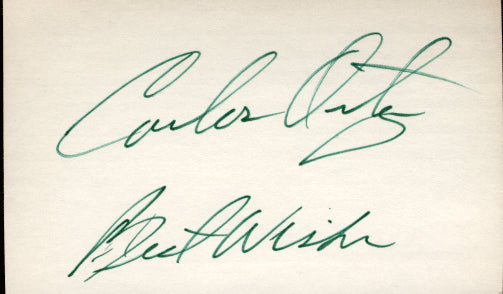 Carlos Ortiz
Best Wishes